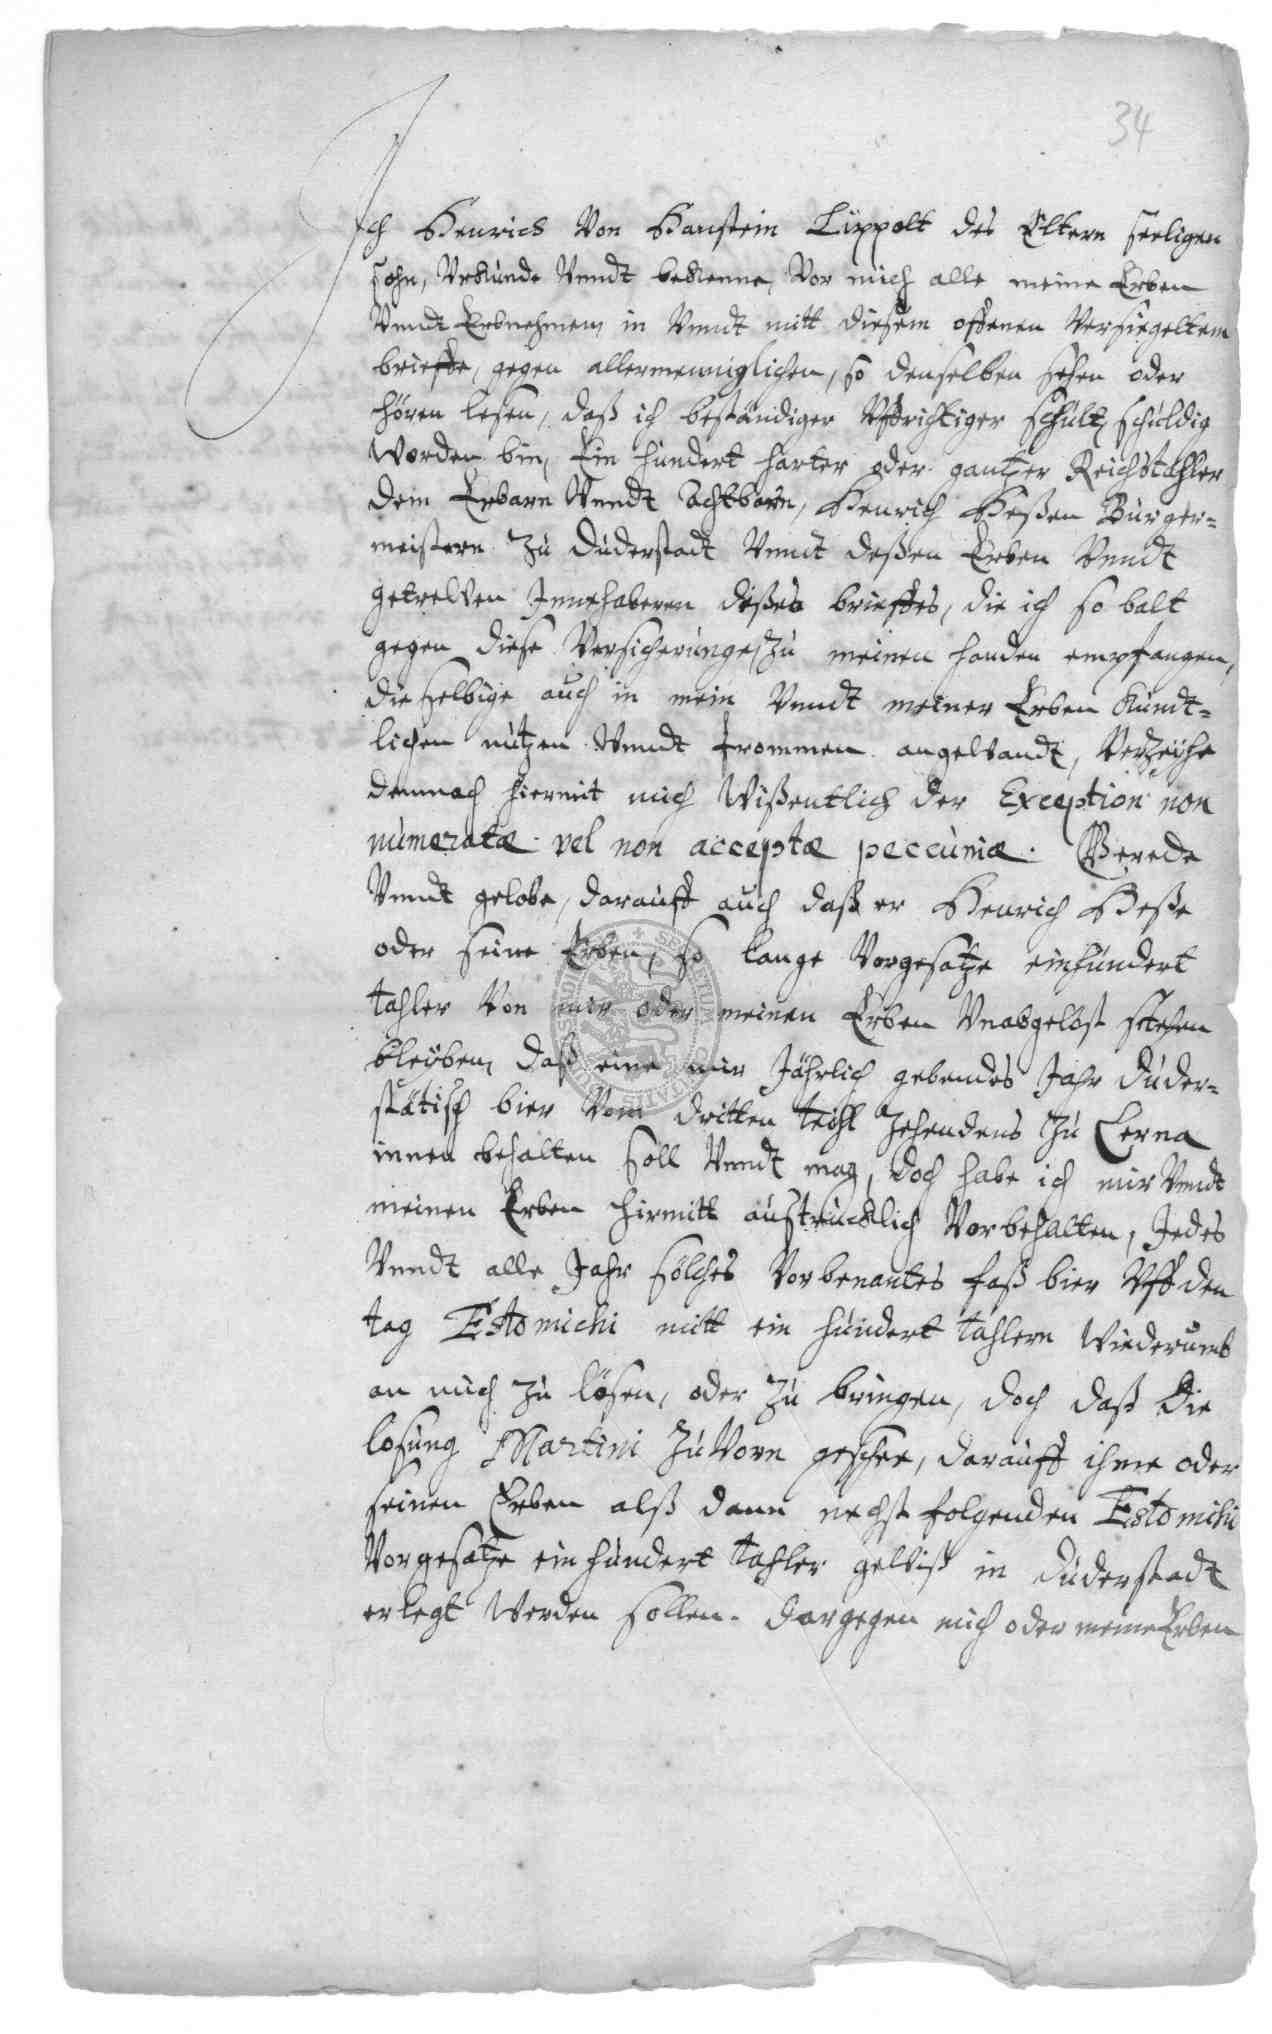 34
Ich Henrich Von Hanstein Lippolt des Eltern seeligen
sohn, Vrkunde Vnndt bekenne, Vor mich alle meine Erben
Vnndt Erbnehmen, in Vnndt mitt diesem offenen Versiegeltem
brieffe, gegen allermenniglichen, so denselben sehen oder
hören lesen, daß ich beständiger Vffrichtiger schult, schuldig
Worden bin, Ein hundert harter oder gantzer Reichstahler
dem Erbarn Vnndt Achtbarn, Henrich Heßen Bürger=
meistern zu Duderstadt Vnndt deßen Erben Vnndt
getrewen Innehaberen dißes brieffes, die ich so balt
gegen diese Versicherunge, zu meinen handen empfangen,
die selbige auch in mein Vnndt meiner Erben kundt=
lichen nutzen Vnndt frommen angewandt, Verzeihe
demnach hiermit mich Wißentlich der Exception non
numeratæ vel non acceptæ peccuniæ. Gerede
Vnndt gelobe, darauff auch daß er Henrich Heße
oder seine Erben, so lange Vorgesatze einhundert
tahler Von mir oder meinen Erben Vnabgelost stehen
bleiben, daß eine mir Jährlich gebendes Fahs duder=
stätisch bier Vom dritten teihl Zehendens zu Berna
innen behalten soll Vnndt mag, doch habe ich mir Vnndt
meinen Erben hirmitt austrücklich Vorbehalten, Jedes
Vnndt alle Jahr solches Vorbenantes faß bier Vff den
tag Estomichi mitt ein hundert tahlern Wiederumb
an mich zu lösen, oder zu bringen, doch daß die
losung Martini zuVorn geschee, darauff ihme oder
seinen Erben alß dann nechst folgenden Estomihi
Vorgesatze ein hundert tahler gewiß in duderstadt
erlegt Werden sollen. dargegen mich oder meine Erben